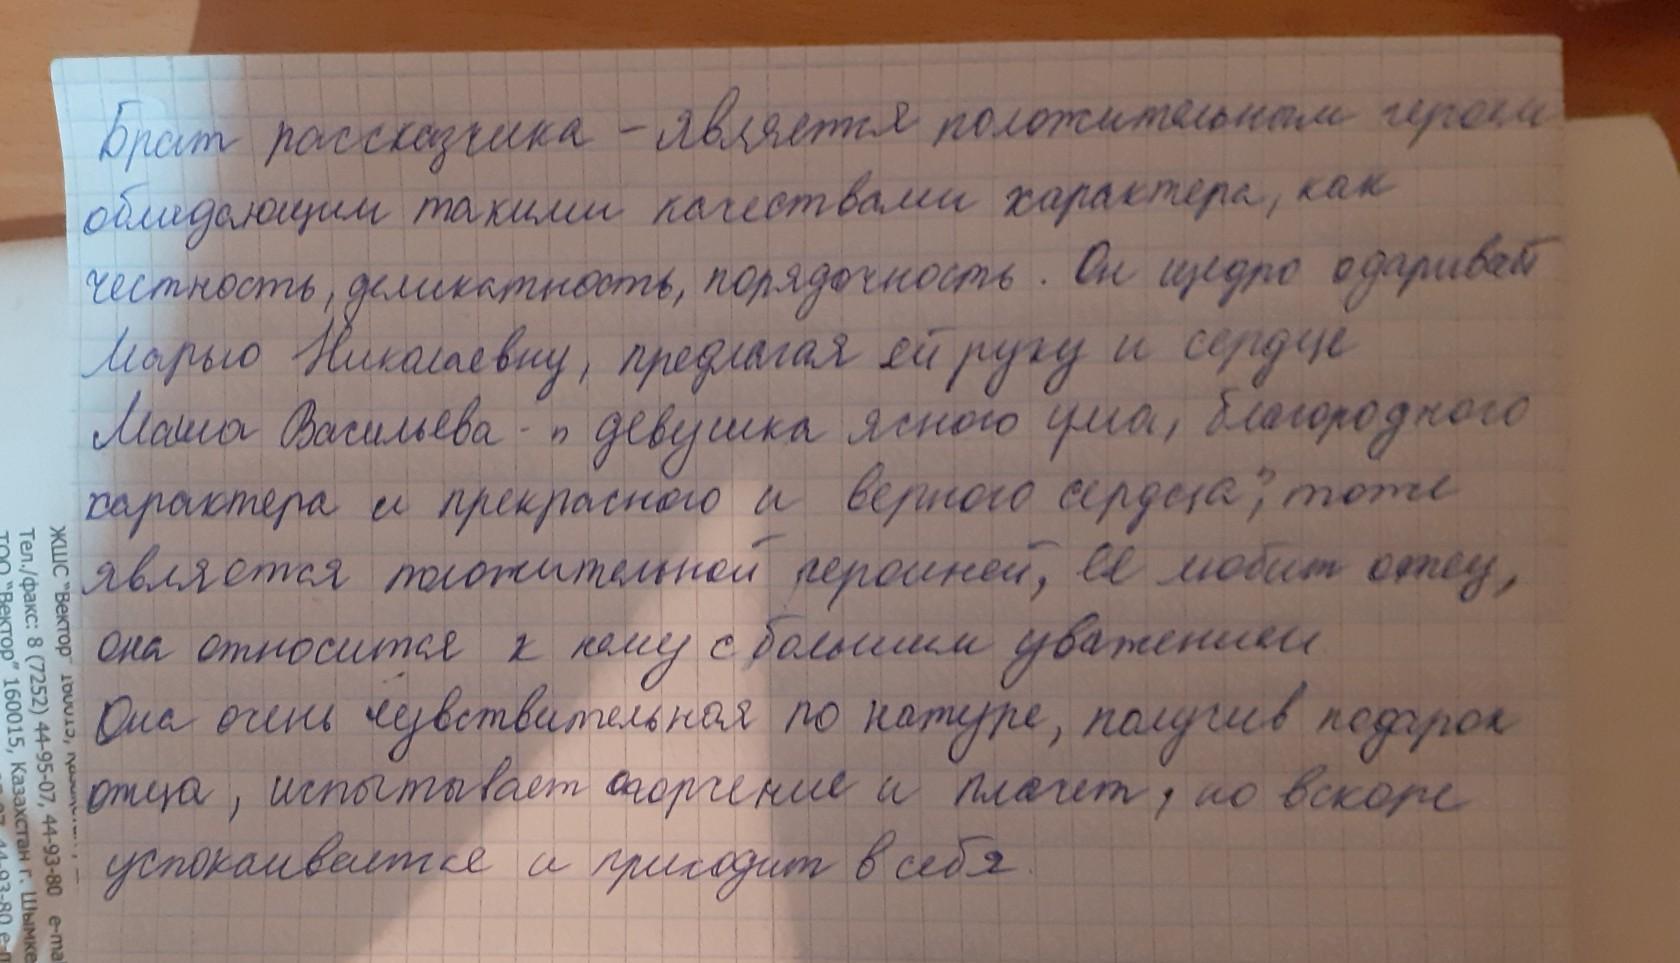 Брат рассказчика – является положительным героем
обладающим такими качествами характера, как
честность, деликатность, порядочность. Он щедро одаривает
Марью Николаевну, предлагая ей руку и сердце
Маша Васильева - „девушка ясного ума, благородного
характера и прекрасного и верного сердца", тоже
является положительной героиней, её любит отец,
она относится к нему с большим уважением
Она очень чувствительная по натуре, получив подарок
отца, испытывает огорчение и плачет, но вскоре
успокаивается и приходит в себя.
ЖШС "Вектор"
Тел./факс: 8 (7252) 44-95-07, 44-93-80 e-mai
ТОО "Вектор" 160015, Казахстан г. Шымке
44-93-80